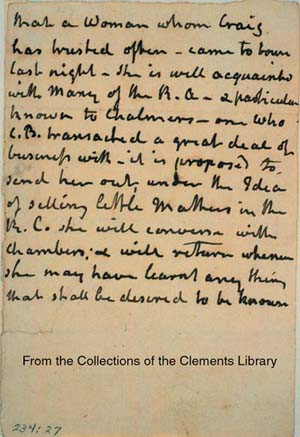 that a Woman whom Craig
has trusted often – came to town
last night – She is well acquainted
with Many of the R. A – & particular
known to Chalmers – one who
C. B. transacted a great deal of
business with – it is proposed to,
send her out, under the Idea
of selling little Matters in the
R. C. She will converse with
Chambers, & will return whenever
she may have learnt any thing
that shall be desired to be known
From the Collections of the Clements Library
234:27